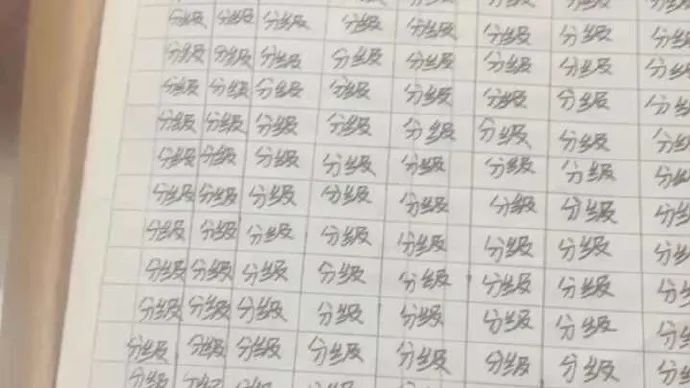 分级 分级 分级 分级 分级 分级 分级 分
分级 分级 分级 分级 分级 分级 分级 分
分级 分级 分级 分级 分级 分级 分级 分
分级 分级 分级 分级 分级 分级 分级 分
分级 分级 分级 分级 分级 分级 分级 分
分级 分级 分级 分级 分级 分级 分级 分
分级 分级 分级 分级 分级 分级 分级 分
分级 分级 分级 分级 分级 分级 分级 分
分级 分级 分级 分级 分级 分级 分级 分
分级 分级 分级 分级 分级 分级 分级 分